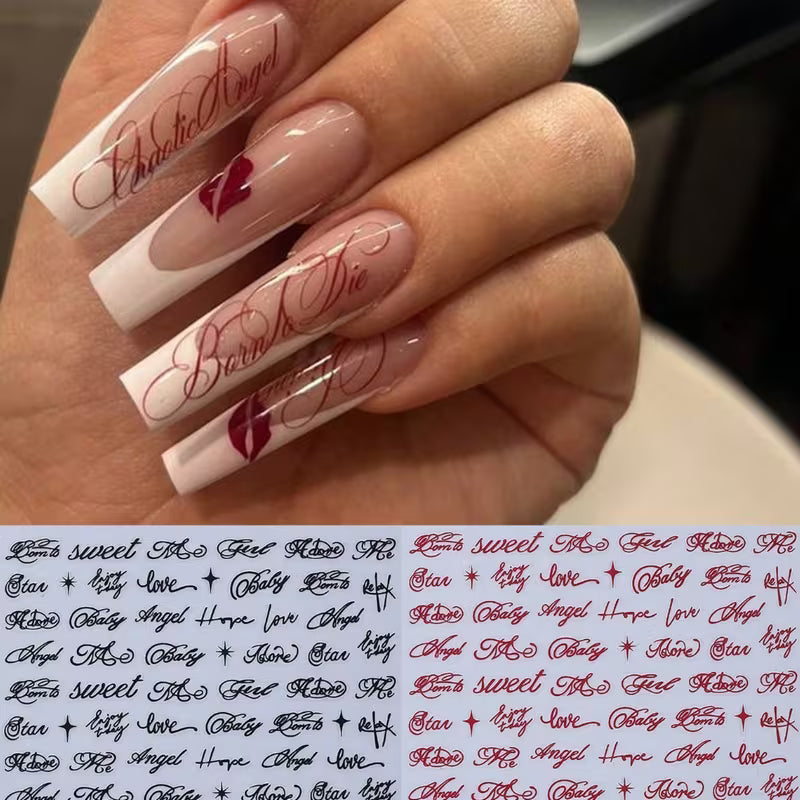 Chaotic Angel
Born to Die
Born to sweet Me Girl Adore Me
Star Enjoy today love Baby Born to Relax
Adore Baby Angel Hope love Angel
Angel Me Baby Adore Star Enjoy today
Born to sweet Me Girl Adore Me
Star Enjoy today love Baby Born to Relax
Adore Me Angel Hope Angel love
Angel Me Baby Adore Star Enjoy
Born to sweet Me Girl Adore Me
Star Enjoy today love Baby Born to Relax
Adore Baby Angel Hope love Angel
Angel Me Baby Adore Star Enjoy today
Born to sweet Me Girl Adore Me
Star Enjoy today love Baby Born to Relax
Adore Me Angel Hope Angel love
Angel Me Baby Adore Star Enjoy